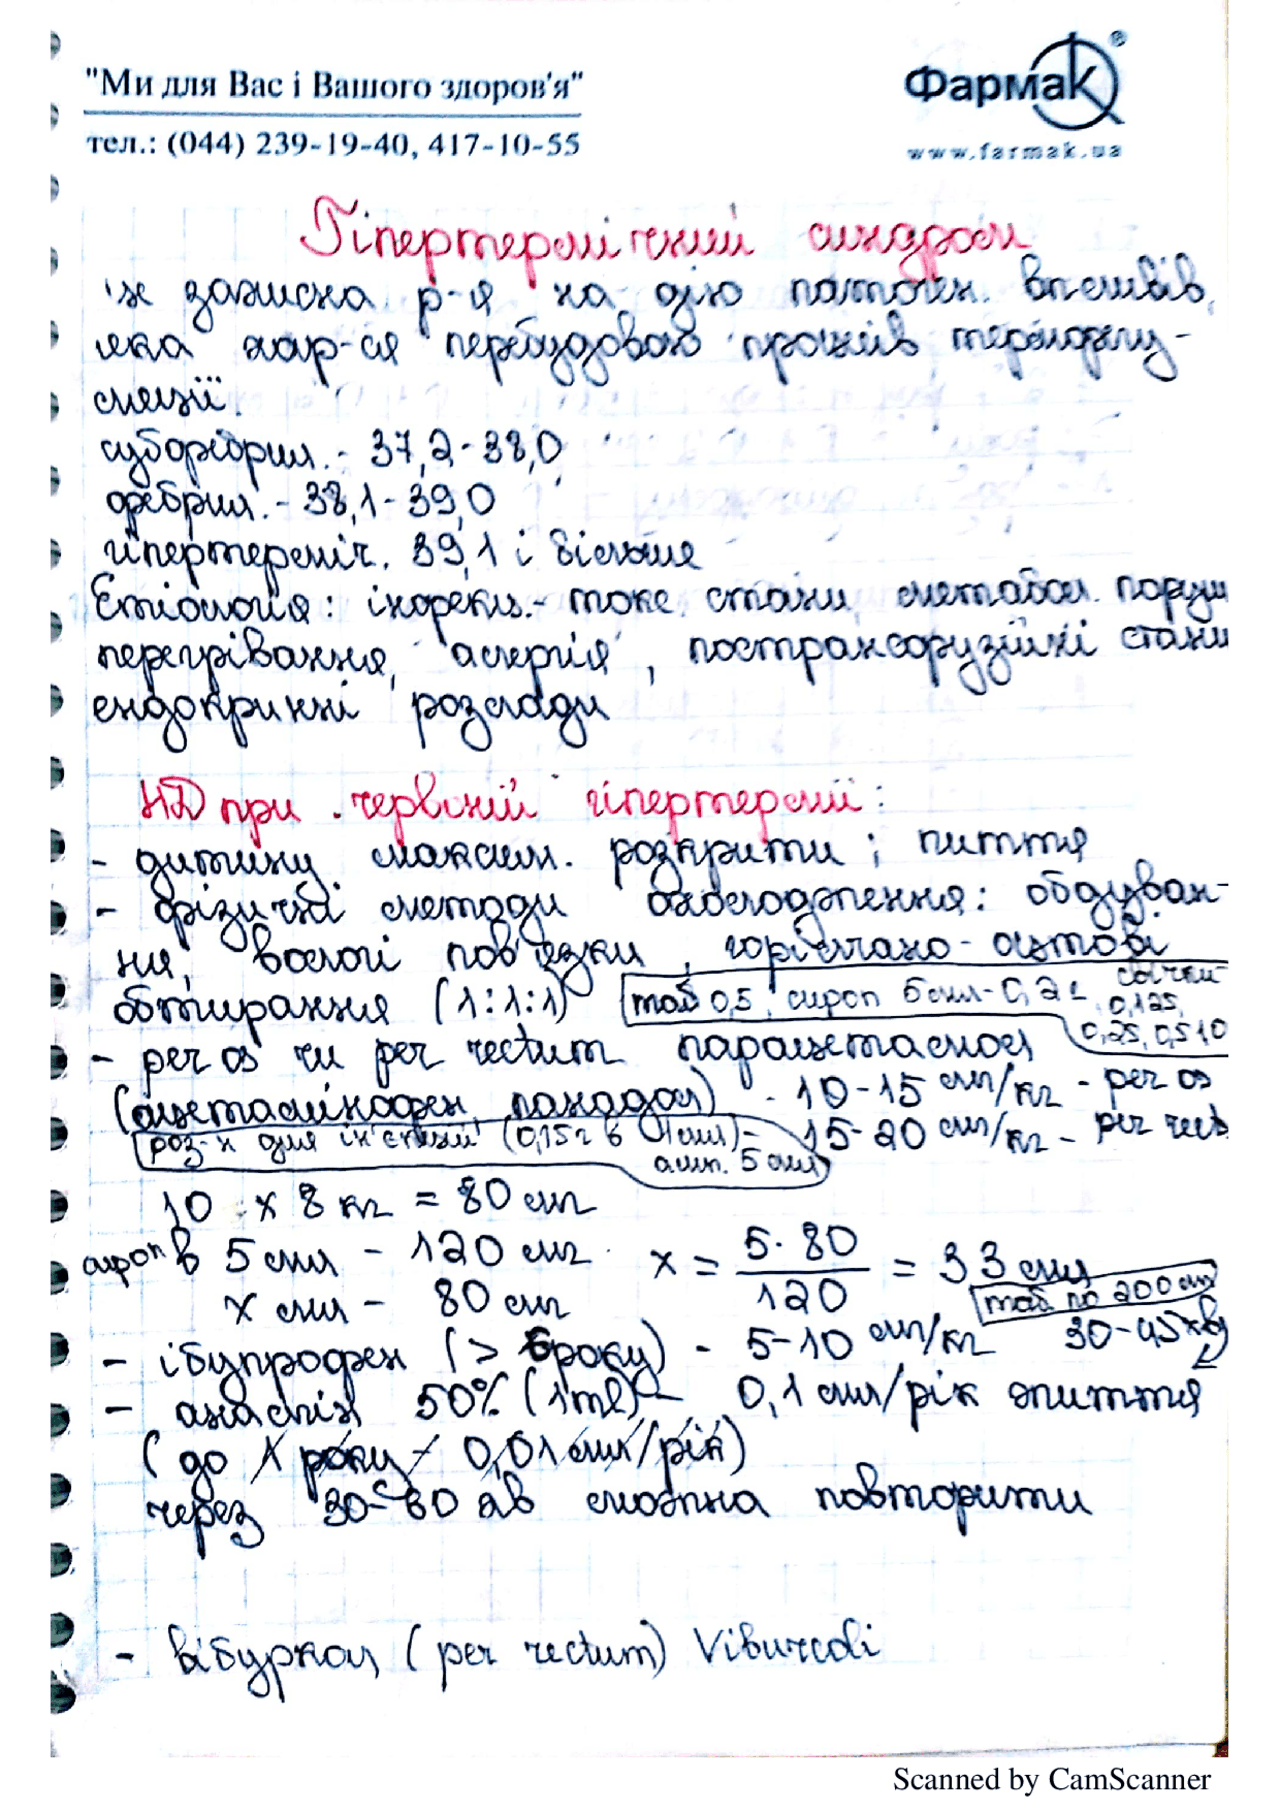 "Ми для Вас і Вашого здоров'я"
тел.: (044) 239-19-40, 417-10-55
Фармак®
www.farmak.ua
Гіпертермічний синдром
це захисна р-я на дію патоген. впливів,
яка хар-ся перебудовою процесів терморегу-
ляції.
субфебрил. - 37,2-38,0
фебрил. - 38,1-39,0
гіпертерміч. 39,1 і більше
Етіологія: інфекц.-токс. стани, метабол. поруш
перегрівання, алергія, пострансфузійні стани
ендокринні розлади
НД при червоній гіпертермії:
- дитину максим. розкрити; пиття
- фізичні методи охолодження: обдуван-
ня, вологі пов'язки, горілчано-оцтові
обтирання (1:1:1)
таб 0,5, сироп 5 мл-0,12г, свічки
0,125,
0,25, 0,5 1,0
- per os чи per rectum парацетамол
(ацетамінофен, панадол) - 10-15 мг/кг - per os
15-20 мг/кг - per rect
роз-н для ін'єкцій (0,15г в 1мл)-
амп. 5 мл
10 х 8 кг = 80 мг
сироп в 5 мл - 120 мг
х мл - 80 мг
х = 5·80 / 120 = 3,3 мл
таб по 200 мг
- ібупрофен (> 6 року) - 5-10 мг/кг 30-45 хв
- анальгін 50% (1ml) - 0,1 мл/рік життя
(до 1 року - 0,01 мл/рік)
через 30-60 хв можна повторити
- вібуркол (per rectum) Viburcoli
Scanned by CamScanner